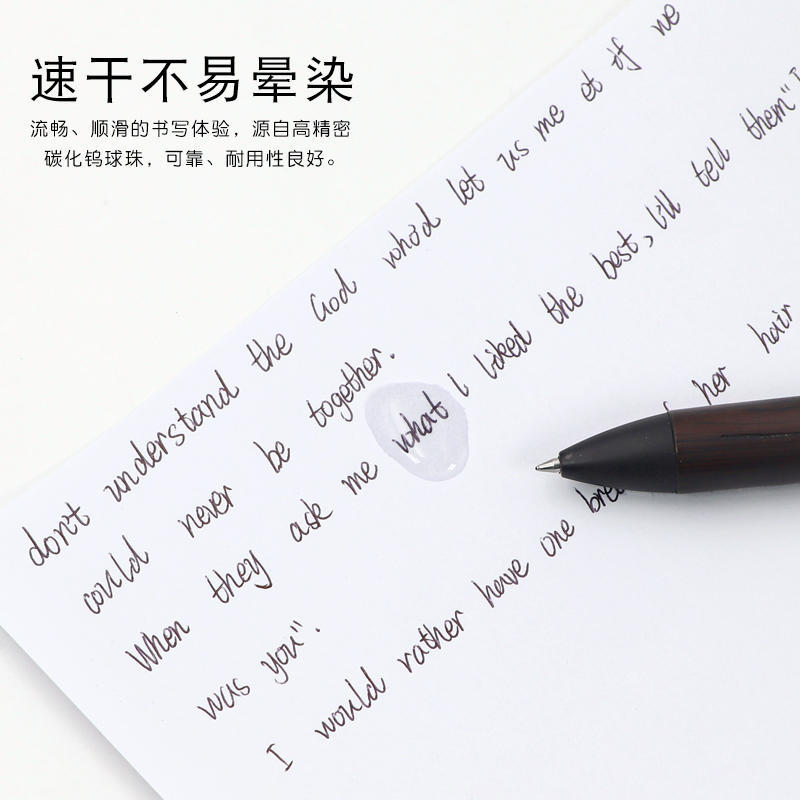 速干不易晕染
流畅、顺滑的书写体验，源自高精密
碳化钨球珠，可靠、耐用性良好。
don't understand the God who'd let us me et if we
could never be together.
When they ask me what I liked the best, I'll tell them "I
was you".
I would rather have one of her hair